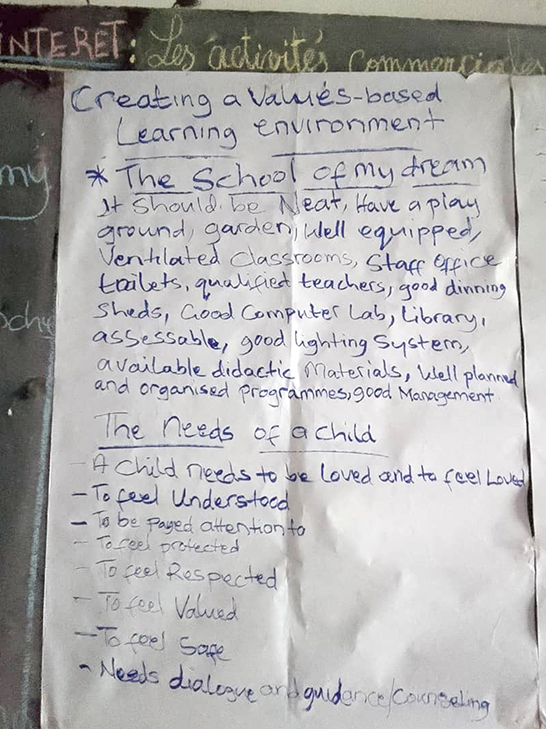 INTERET: Les activités commerciales
my
ochy
Creating a Values-based
Learning environment
* The School of my dream
It should be Neat, Have a play
ground, garden, Well equipped,
Ventilated Classrooms, Staff Office
toilets, qualified teachers, good dinning
Sheds, Good Computer Lab, Library,
assessable, good lighting System,
available didactic Materials, Well planned
and organised programmes, good Management
The Needs of a Child
- A Child needs to be loved and to feel Loved
- To feel Understood
- To be payed attention to
- To feel protected
- To feel Respected
- To feel Valued
- To feel Safe
- Needs dialogue and guidance/Counseling